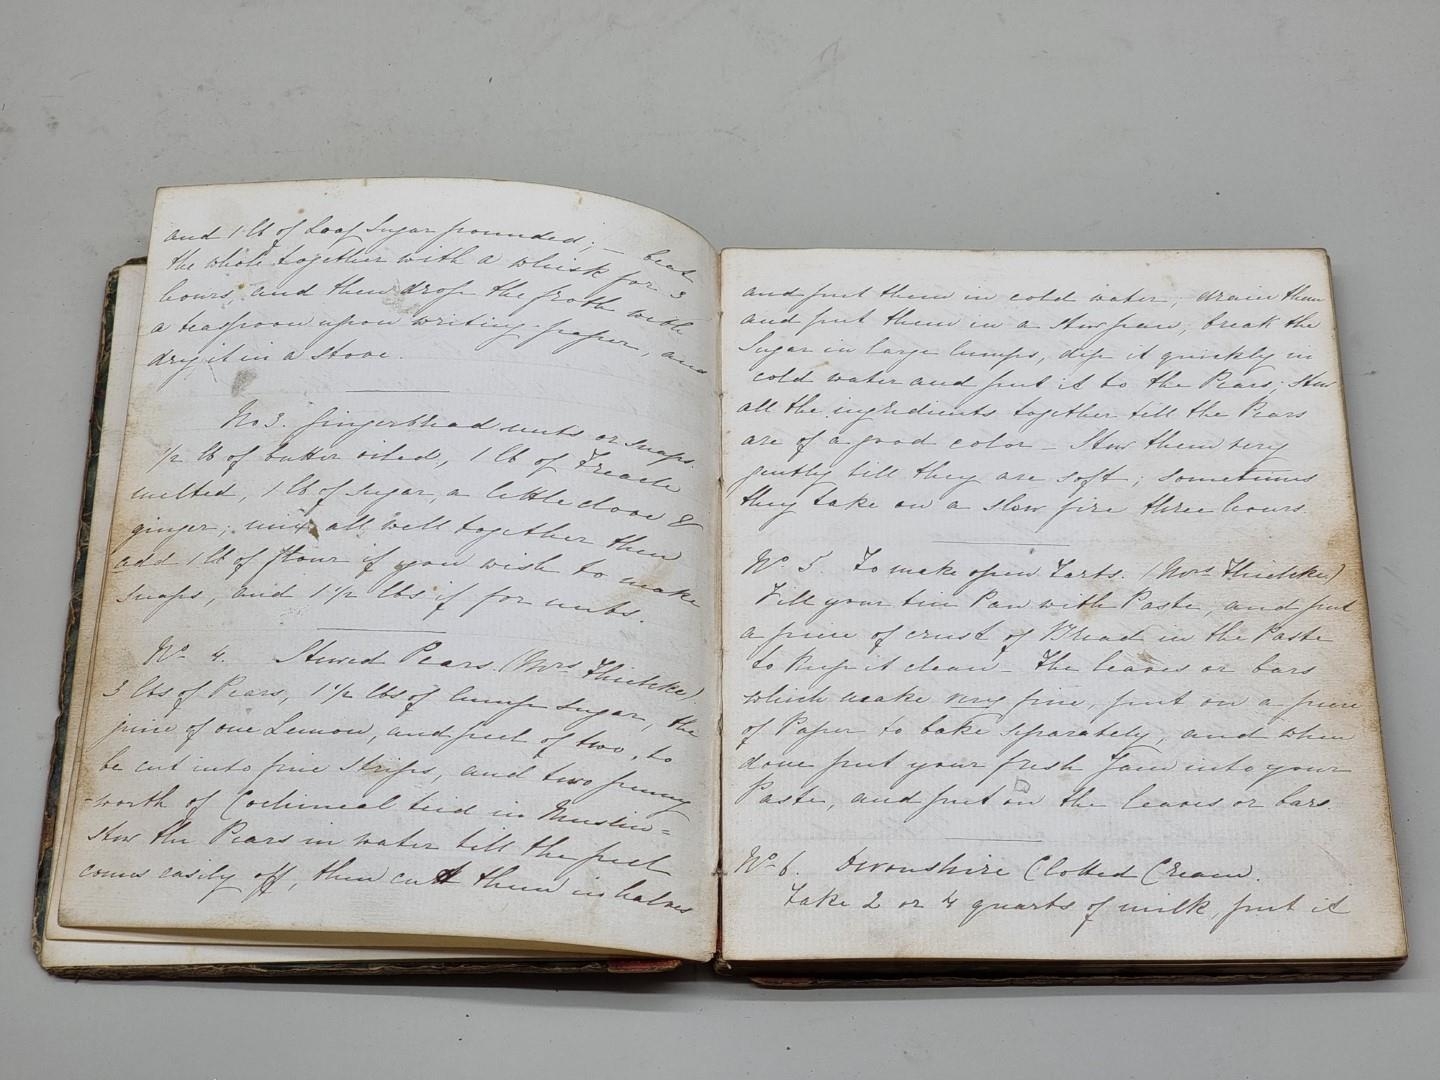 and 1 lb of Loaf Sugar pounded; — beat
the whole together with a whisk for 3
hours, and then drop the froth with
a teaspoon upon writing paper, and
dry it in a stove.
No 3. Gingerbread nuts or snaps.
1/2 lb of butter oiled, 1 lb of Treacle
melted, 1 lb of sugar, a little clove &
ginger; mix all well together then
add 1 lb of flour if you wish to make
snaps, and 1 1/2 lbs if for nuts.
No 4. Stewed Pears. (Mrs Thielcke)
3 lbs of Pears, 1 1/2 lbs of lump sugar, the
juice of one Lemon, and peel of two, to
be cut into fine strips, and two penny
-worth of Cochineal tied in Muslin =
Stew the Pears in water till the peel
comes easily off, then cutt them in halves
and put them in cold water; drain them
and put them in a stewpan; break the
Sugar in large lumps, dip it quickly in
cold water and put it to the Pears; Stew
all the ingredients together till the Pears
are of a good color — Stew them very
gently till they are soft; sometimes
they take on a slow fire three hours.
No 5. To make open Tarts. (Mrs Thielcke)
Fill your tin Pan with Paste, and put
a piece of crust of Bread in the Paste
to keep it clean — The leaves or bars
which make very fine, put on a piece
of Paper to bake separately, and when
done put your fresh Jam into your
Paste, and put on the leaves or bars.
No 6. Devonshire Clotted Cream.
Take 2 or 4 quarts of milk, put it